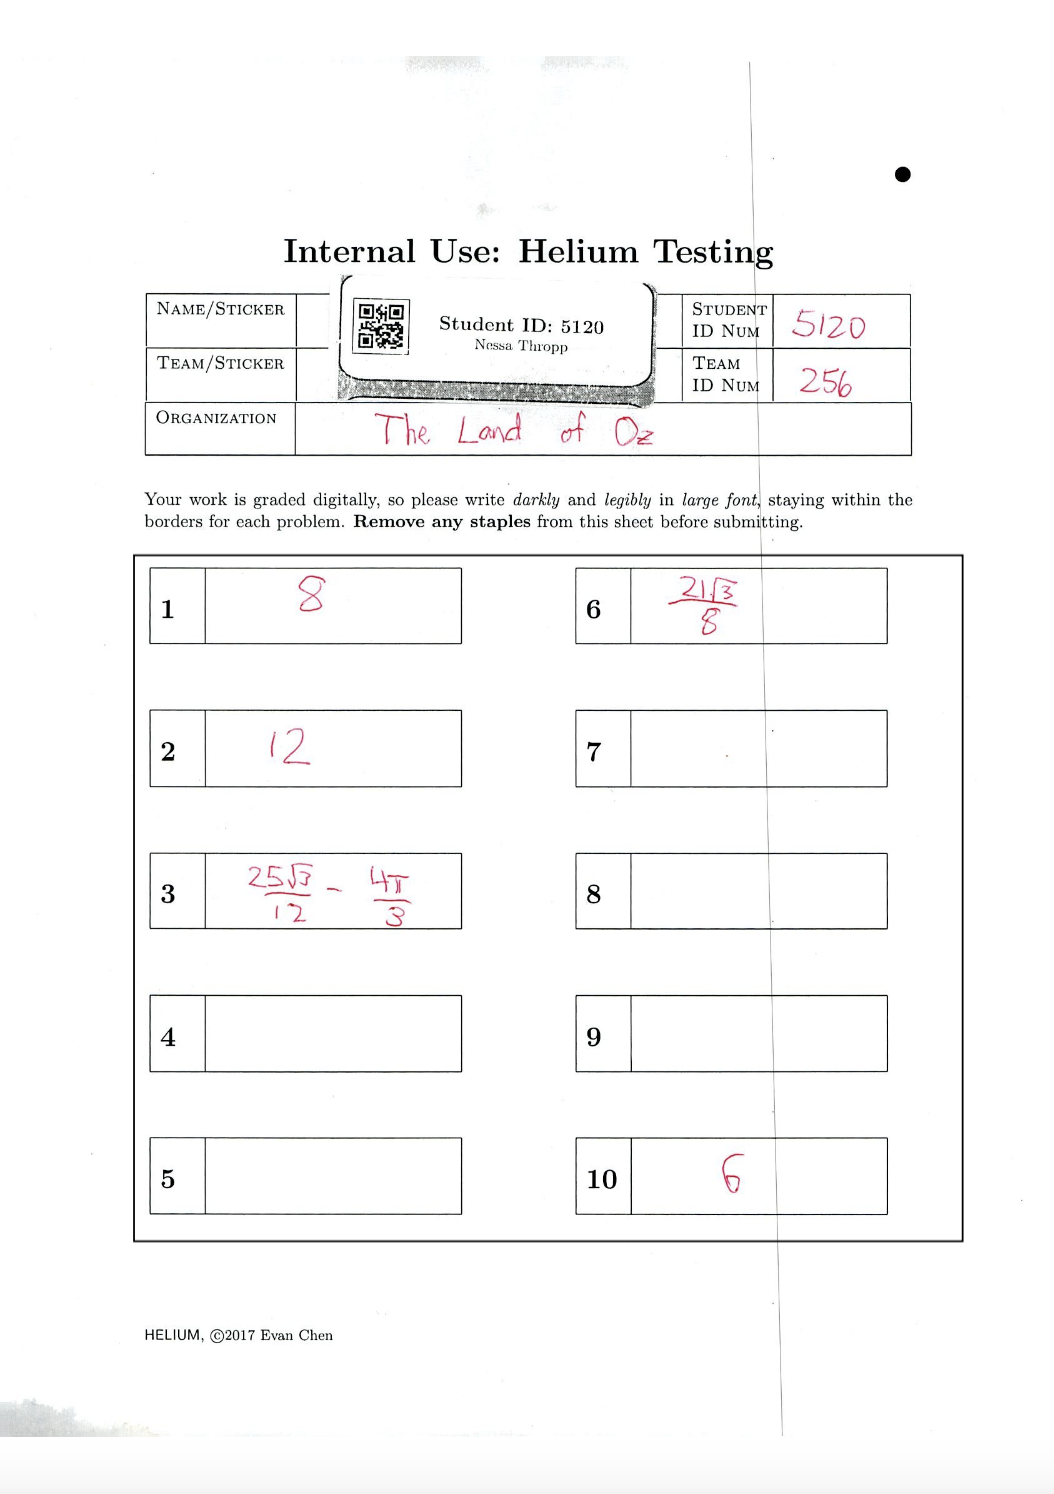 Internal Use: Helium Testing
NAME/STICKER
Student ID: 5120
Nessa Thropp
STUDENT ID NUM
5120
TEAM/STICKER
TEAM ID NUM
256
ORGANIZATION
The Land of Oz
Your work is graded digitally, so please write darkly and legibly in large font, staying within the
borders for each problem. Remove any staples from this sheet before submitting.
1 8
2 12
3 25√3/12 - 4π/3
4
5
6 21√3/8
7
8
9
10 6
HELIUM, ©2017 Evan Chen